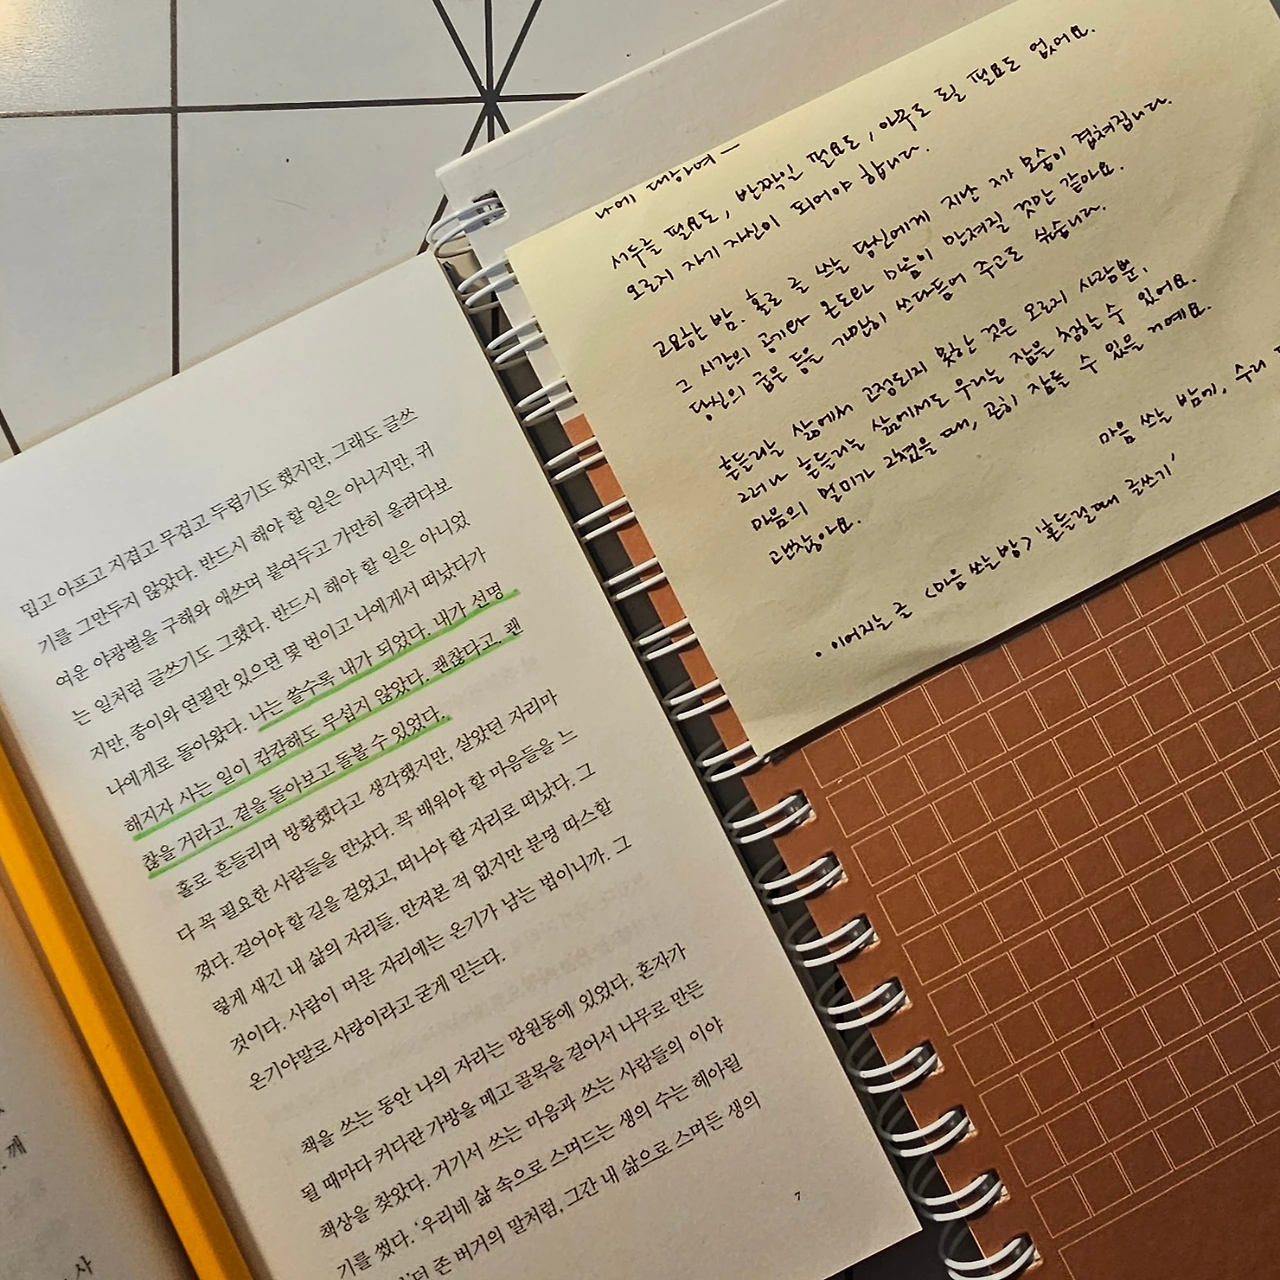 밉고 아프고 지겹고 무겁고 두렵기도 했지만, 그래도 글쓰
기를 그만두지 않았다. 반드시 해야 할 일은 아니지만, 귀
여운 야광별을 구해와 애쓰며 붙여두고 가만히 올려다보
는 일처럼 글쓰기도 그랬다. 반드시 해야 할 일은 아니었
지만, 종이와 연필만 있으면 몇 번이고 나에게서 떠났다가
나에게로 돌아왔다. 나는 쓸수록 내가 되었다. 내가 선명
해지자 사는 일이 캄캄해도 무섭지 않았다. 괜찮다고, 괜
찮을 거라고, 곁을 돌아보고 돌볼 수 있었다.
홀로 흔들리며 방황했다고 생각했지만, 살았던 자리마
다 꼭 필요한 사람들을 만났다. 꼭 배워야 할 마음들을 느
꼈다. 걸어야 할 길을 걸었고, 떠나야 할 자리로 떠났다. 그
렇게 새긴 내 삶의 자리들. 만져본 적 없지만 분명 따스할
것이다. 사람이 머문 자리에는 온기가 남는 법이니까. 그
온기야말로 사랑이라고 굳게 믿는다.
책을 쓰는 동안 나의 자리는 망원동에 있었다. 혼자가
될 때마다 커다란 가방을 메고 골목을 걸어서 나무로 만든
책상을 찾았다. 거기서 쓰는 마음과 쓰는 사람들의 이야
기를 썼다. '우리네 삶 속으로 스며드는 생의 수는 헤아릴
존 버거의 말처럼, 그간 내 삶으로 스며든 생의
7
깨
사
나에 대하여 –
서두를 필요도, 반짝일 필요도, 아무도 될 필요도 없어요.
오로지 자기 자신이 되어야 합니다.
고요한 밤. 홀로 글 쓸 당신에게 지난 제가 모습이 겹쳐집니다.
그 시간의 공기와 온도와 마음이 만져질 것만 같아요.
당신의 굽은 등을 가만히 쓰다듬어 주고도 싶습니다.
흔들리는 삶에서 고정되지 못한 것은 오로지 사람뿐,
그러나 흔들리는 삶에서도 우리는 잠을 청할 수 있어요.
마음의 멀미가 고됐을 때, 곤히 잠들 수 있을 거예요.
괜찮아요.
마음 쓰는 밤에, 수리
• 이어지는 글 <마음 쓰는 밤> '흔들릴 때 글쓰기'